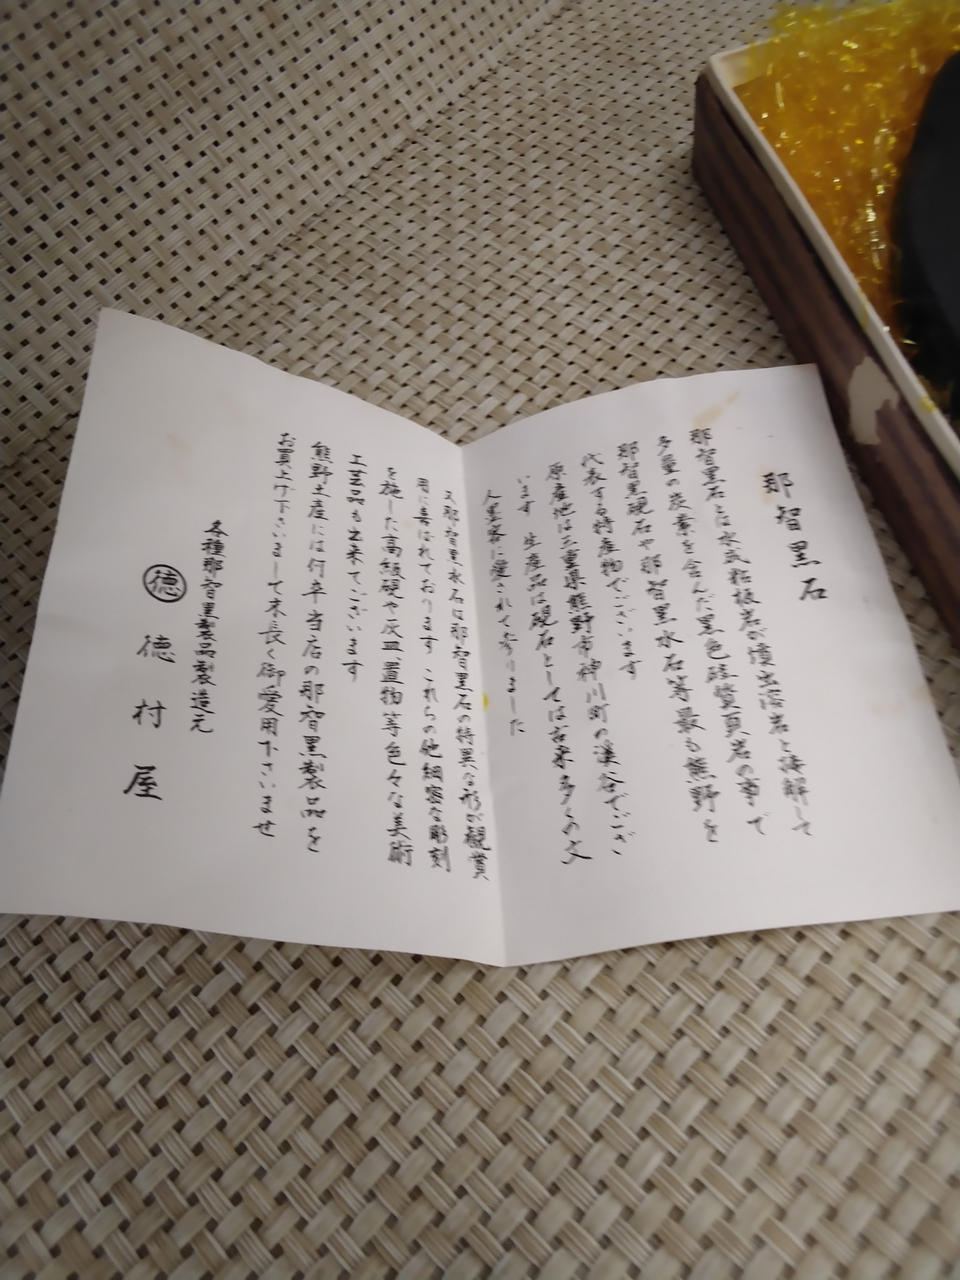 那智黒石
那智黒石とは水成粘板岩が噴出溶岩と接解して
多量の炭素を含んだ黒色硅質頁岩の事で
那智黒硯石や那智黒水石等最も熊野を
代表する特産物でございます
原産地は三重県熊野市神川町の渓谷でござ
います 生産品は硯石としては古来多くの文
人墨客に愛されて参りました
又那智黒水石は那智黒石の特異な形が観賞
用に喜ばれております これらの他細密な彫刻
を施した高級硯や灰皿、置物等色々な美術
工芸品も出来てございます
熊野土産には何卒当店の那智黒製品を
お買上げ下さいまして末長く御愛用下さいませ
各種那智黒製品製造元
徳 徳村屋